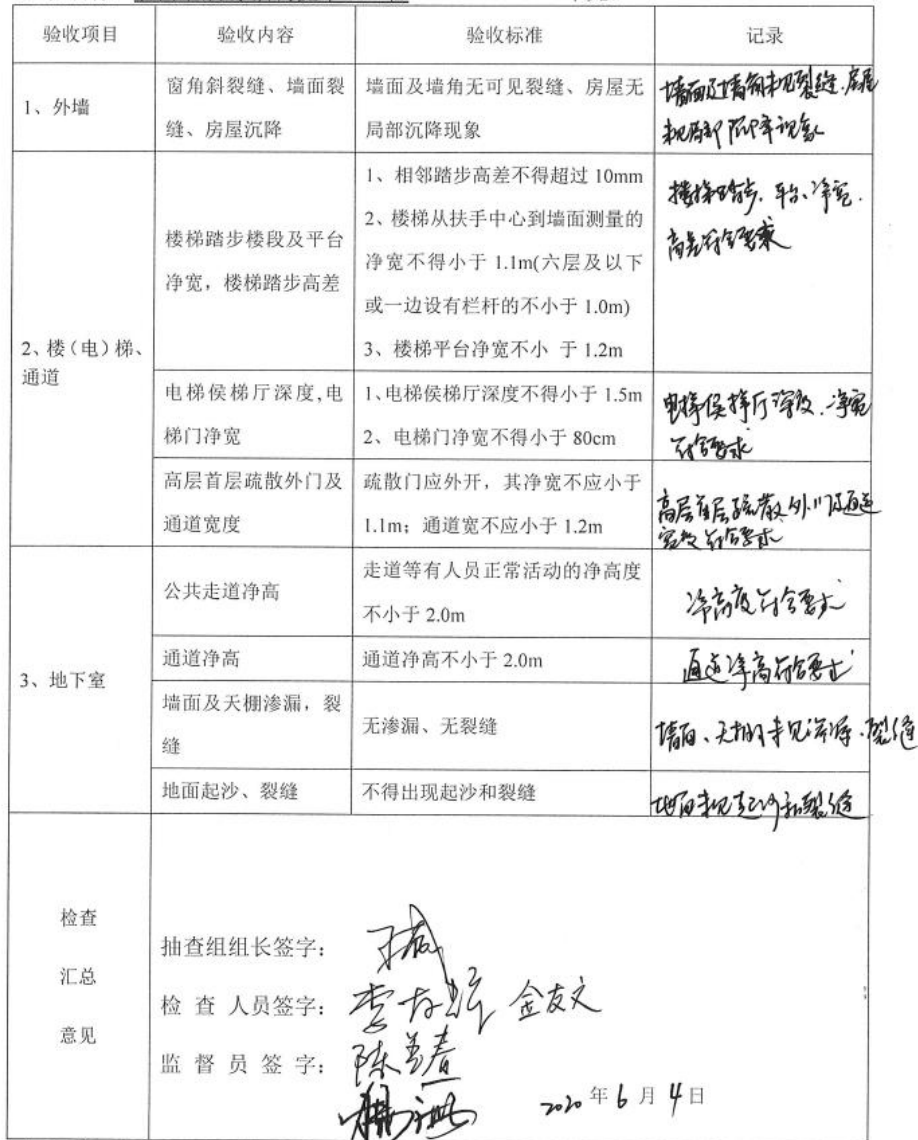 验收项目 验收内容 验收标准 记录
1、外墙
窗角斜裂缝、墙面裂
缝、房屋沉降
墙面及墙角无可见裂缝、房屋无
局部沉降现象
墙面及墙角未见裂缝.房屋
未见局部沉降现象
2、楼（电）梯、
通道
楼梯踏步楼段及平台
净宽，楼梯踏步高差
1、相邻踏步高差不得超过 10mm
2、楼梯从扶手中心到墙面测量的
净宽不得小于 1.1m(六层及以下
或一边设有栏杆的不小于 1.0m)
3、楼梯平台净宽不小 于 1.2m
楼梯踏步.平台、净宽.
高差符合要求
电梯侯梯厅深度,电
梯门净宽
1、电梯侯梯厅深度不得小于 1.5m
2、电梯门净宽不得小于 80cm
电梯侯梯厅深度.净宽
符合要求
高层首层疏散外门及
通道宽度
疏散门应外开，其净宽不应小于
1.1m；通道宽不应小于 1.2m
高层首层疏散外门及通道
宽度符合要求
3、地下室
公共走道净高
走道等有人员正常活动的净高度
不小于 2.0m
净高度符合要求
通道净高
通道净高不小于 2.0m
通道净高符合要求
墙面及天棚渗漏，裂
缝
无渗漏、无裂缝
墙面、天棚未见渗漏.裂缝
地面起沙、裂缝
不得出现起沙和裂缝
地面未见起沙和裂缝
检查
汇总
意见
抽查组组长签字：
检 查 人员签字： 金友文
监 督 员 签 字： 陈
2020年6月4日